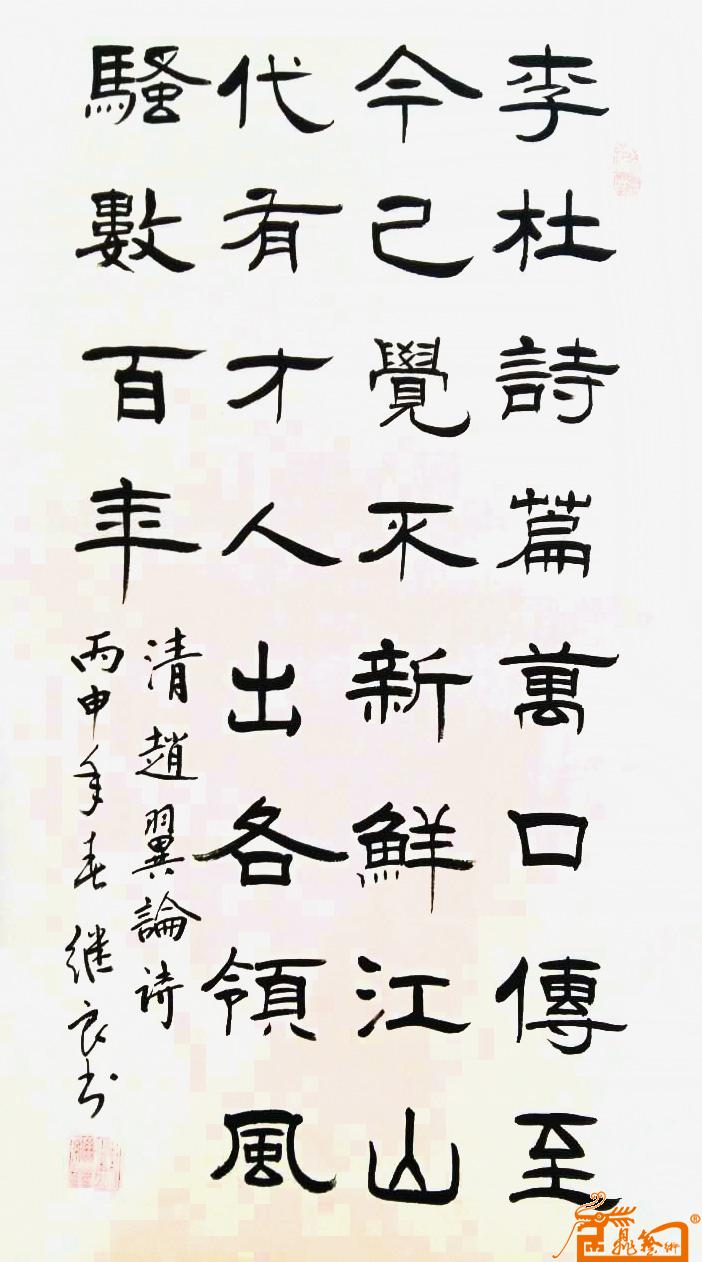 李杜詩篇萬口傳至
今已覺不新鮮江山
代有才人出各領風
騷數百年
清趙翼論诗
丙申年春继良书